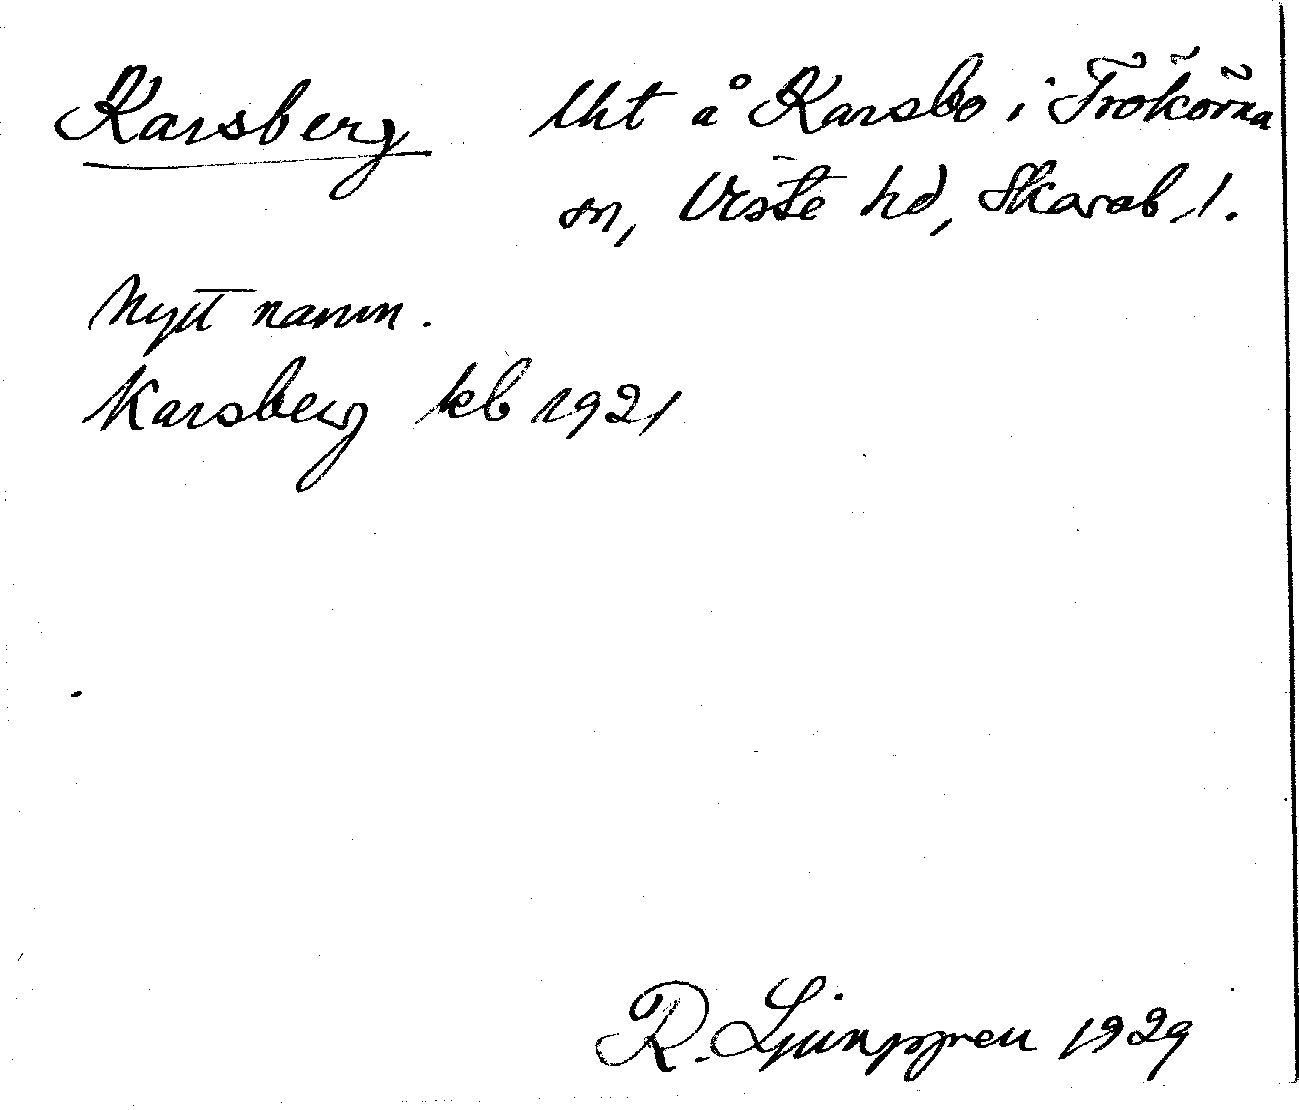 Karsberg Lht å Karsbo i Trökörna
sn, Viste hd, Skarab. l.
Nytt namn.
Karsberg kb 1921
R. Ljunggren 1929